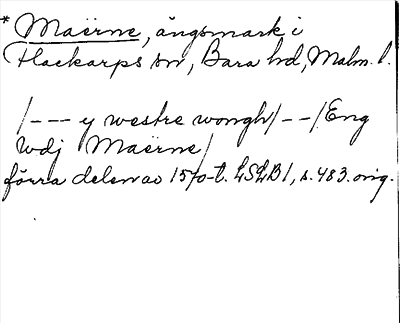 * Maërne, ängsmark i
Flackarps sn, Bara hd, Malm. l.
/--- y westre wongh/--/Eng
wdj Maërne/
förra delen av 1570-t. LSLB 1, s. 483. orig.